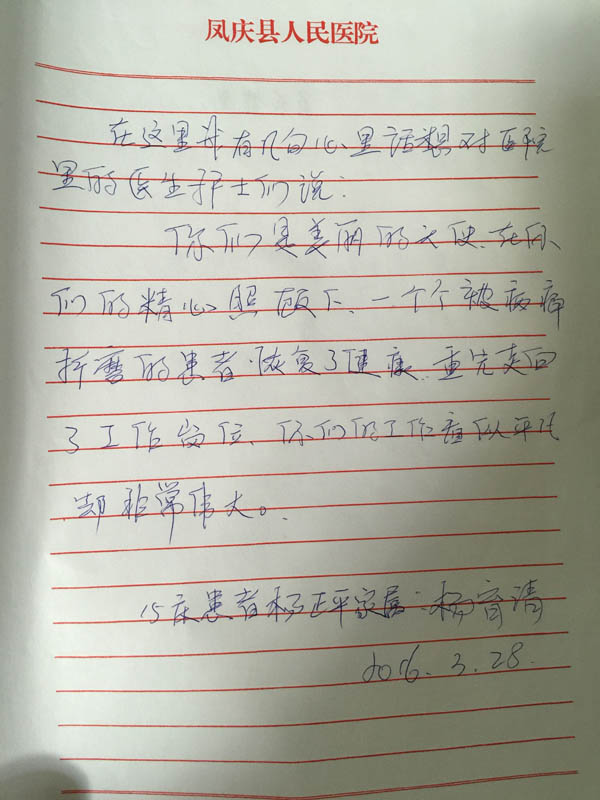 凤庆县人民医院
在这里我有几句心里话想对医院
里的医生护士们说：
你们是美丽的天使、在你
们的精心照顾下、一个个被病痛
折磨的患者恢复了健康、重走回
了工作岗位、你们的工作看似平凡
却非常伟大。
15床患者杨正平家属：杨
2016.3.28.